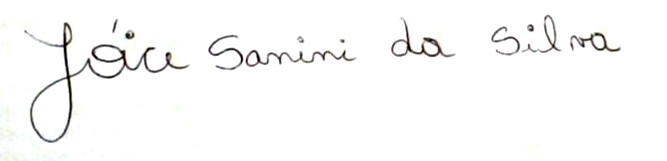 Jóice Sanini da Silva